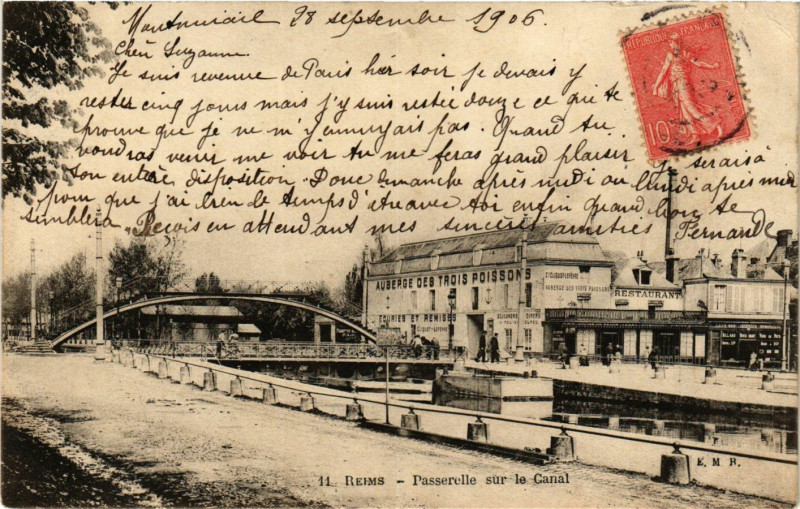 Montmirail 28 septembre 1906
Chèr Suzanne.
Je suis revenue de Paris hièr soir je devais y
rester cinq jours mais j'y suis restée douze ce qui te
prouve que je ne m'y ennuyais pas. Quand tu
voudras venir me voir tu me feras grand plaisir je serais à
ton entière disposition. Donc dimanche après midi ou lundi après midi
pour que j'ai bien le temps d'être avec toi enfin quand bon te
semblera. Reçois en attendant mes sincères amitiés Fernande
RÉPUBLIQUE FRANÇAISE
10
AUBERGE DES TROIS POISSONS
ÉCURIES ET REMISES
AUBERGE
DES TROIS POISSONS
RESTAURANT
E. M. R.
11 REIMS - Passerelle sur le Canal